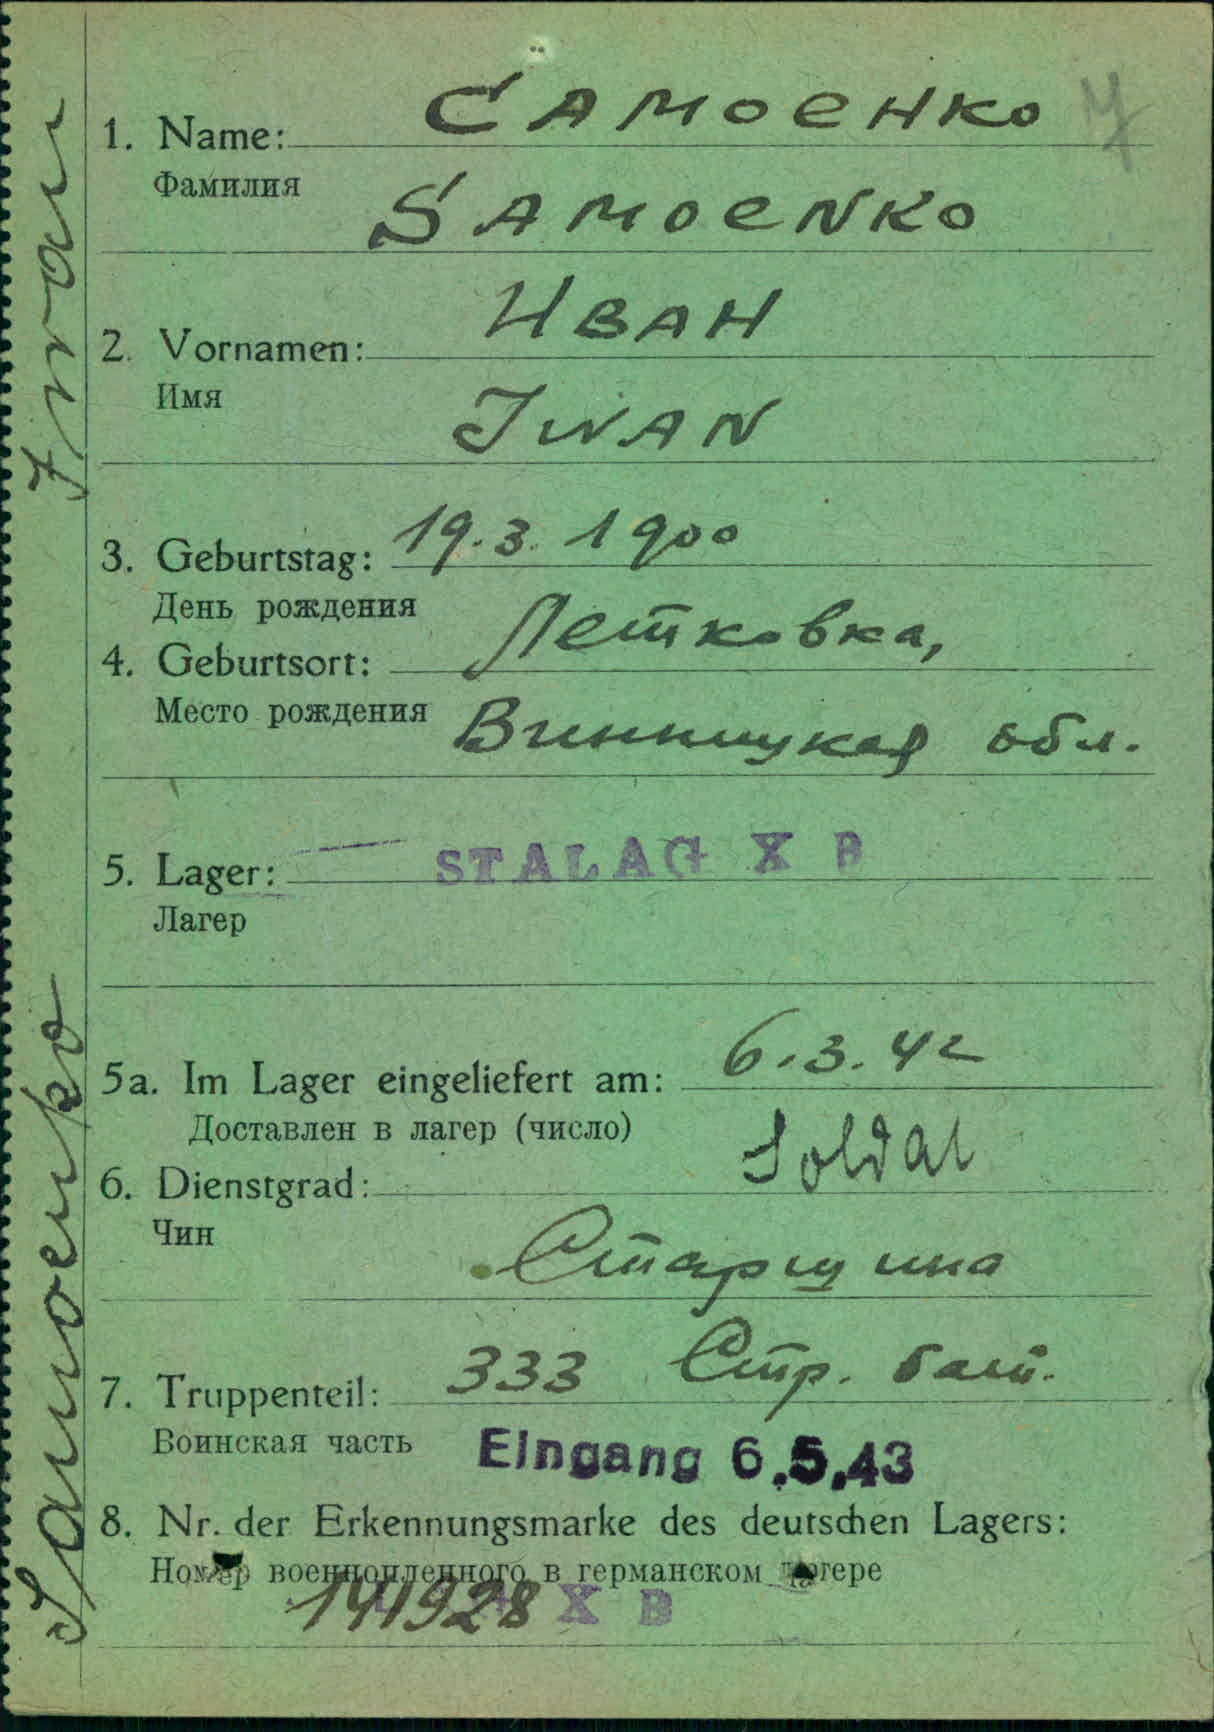 1. Name: Самоенко
Фамилия
Samoenko
2. Vornamen: Иван
Имя
Iwan
3. Geburtstag: 19.3.1900
День рождения
4. Geburtsort: Летковка,
Место рождения Винницкая обл.
5. Lager: STALAG X B
Лагер
5a. Im Lager eingeliefert am: 6.3.42
Доставлен в лагер (число)
6. Dienstgrad: Soldat
Чин
Старшина
7. Truppenteil: 333 Стр. бат.
Воинская часть Eingang 6.5.43
8. Nr. der Erkennungsmarke des deutschen Lagers:
Номер военнопленного в германском лагере
141928 X B
Samoenko Iwan